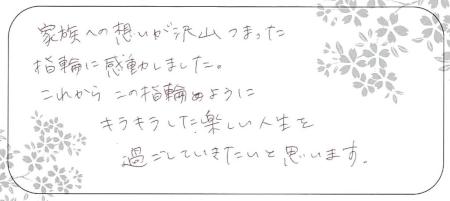 家族への想いが沢山つまった
指輪に感動しました。
これから この指輪のように
キラキラした楽しい人生を
過ごしていきたいと思います。